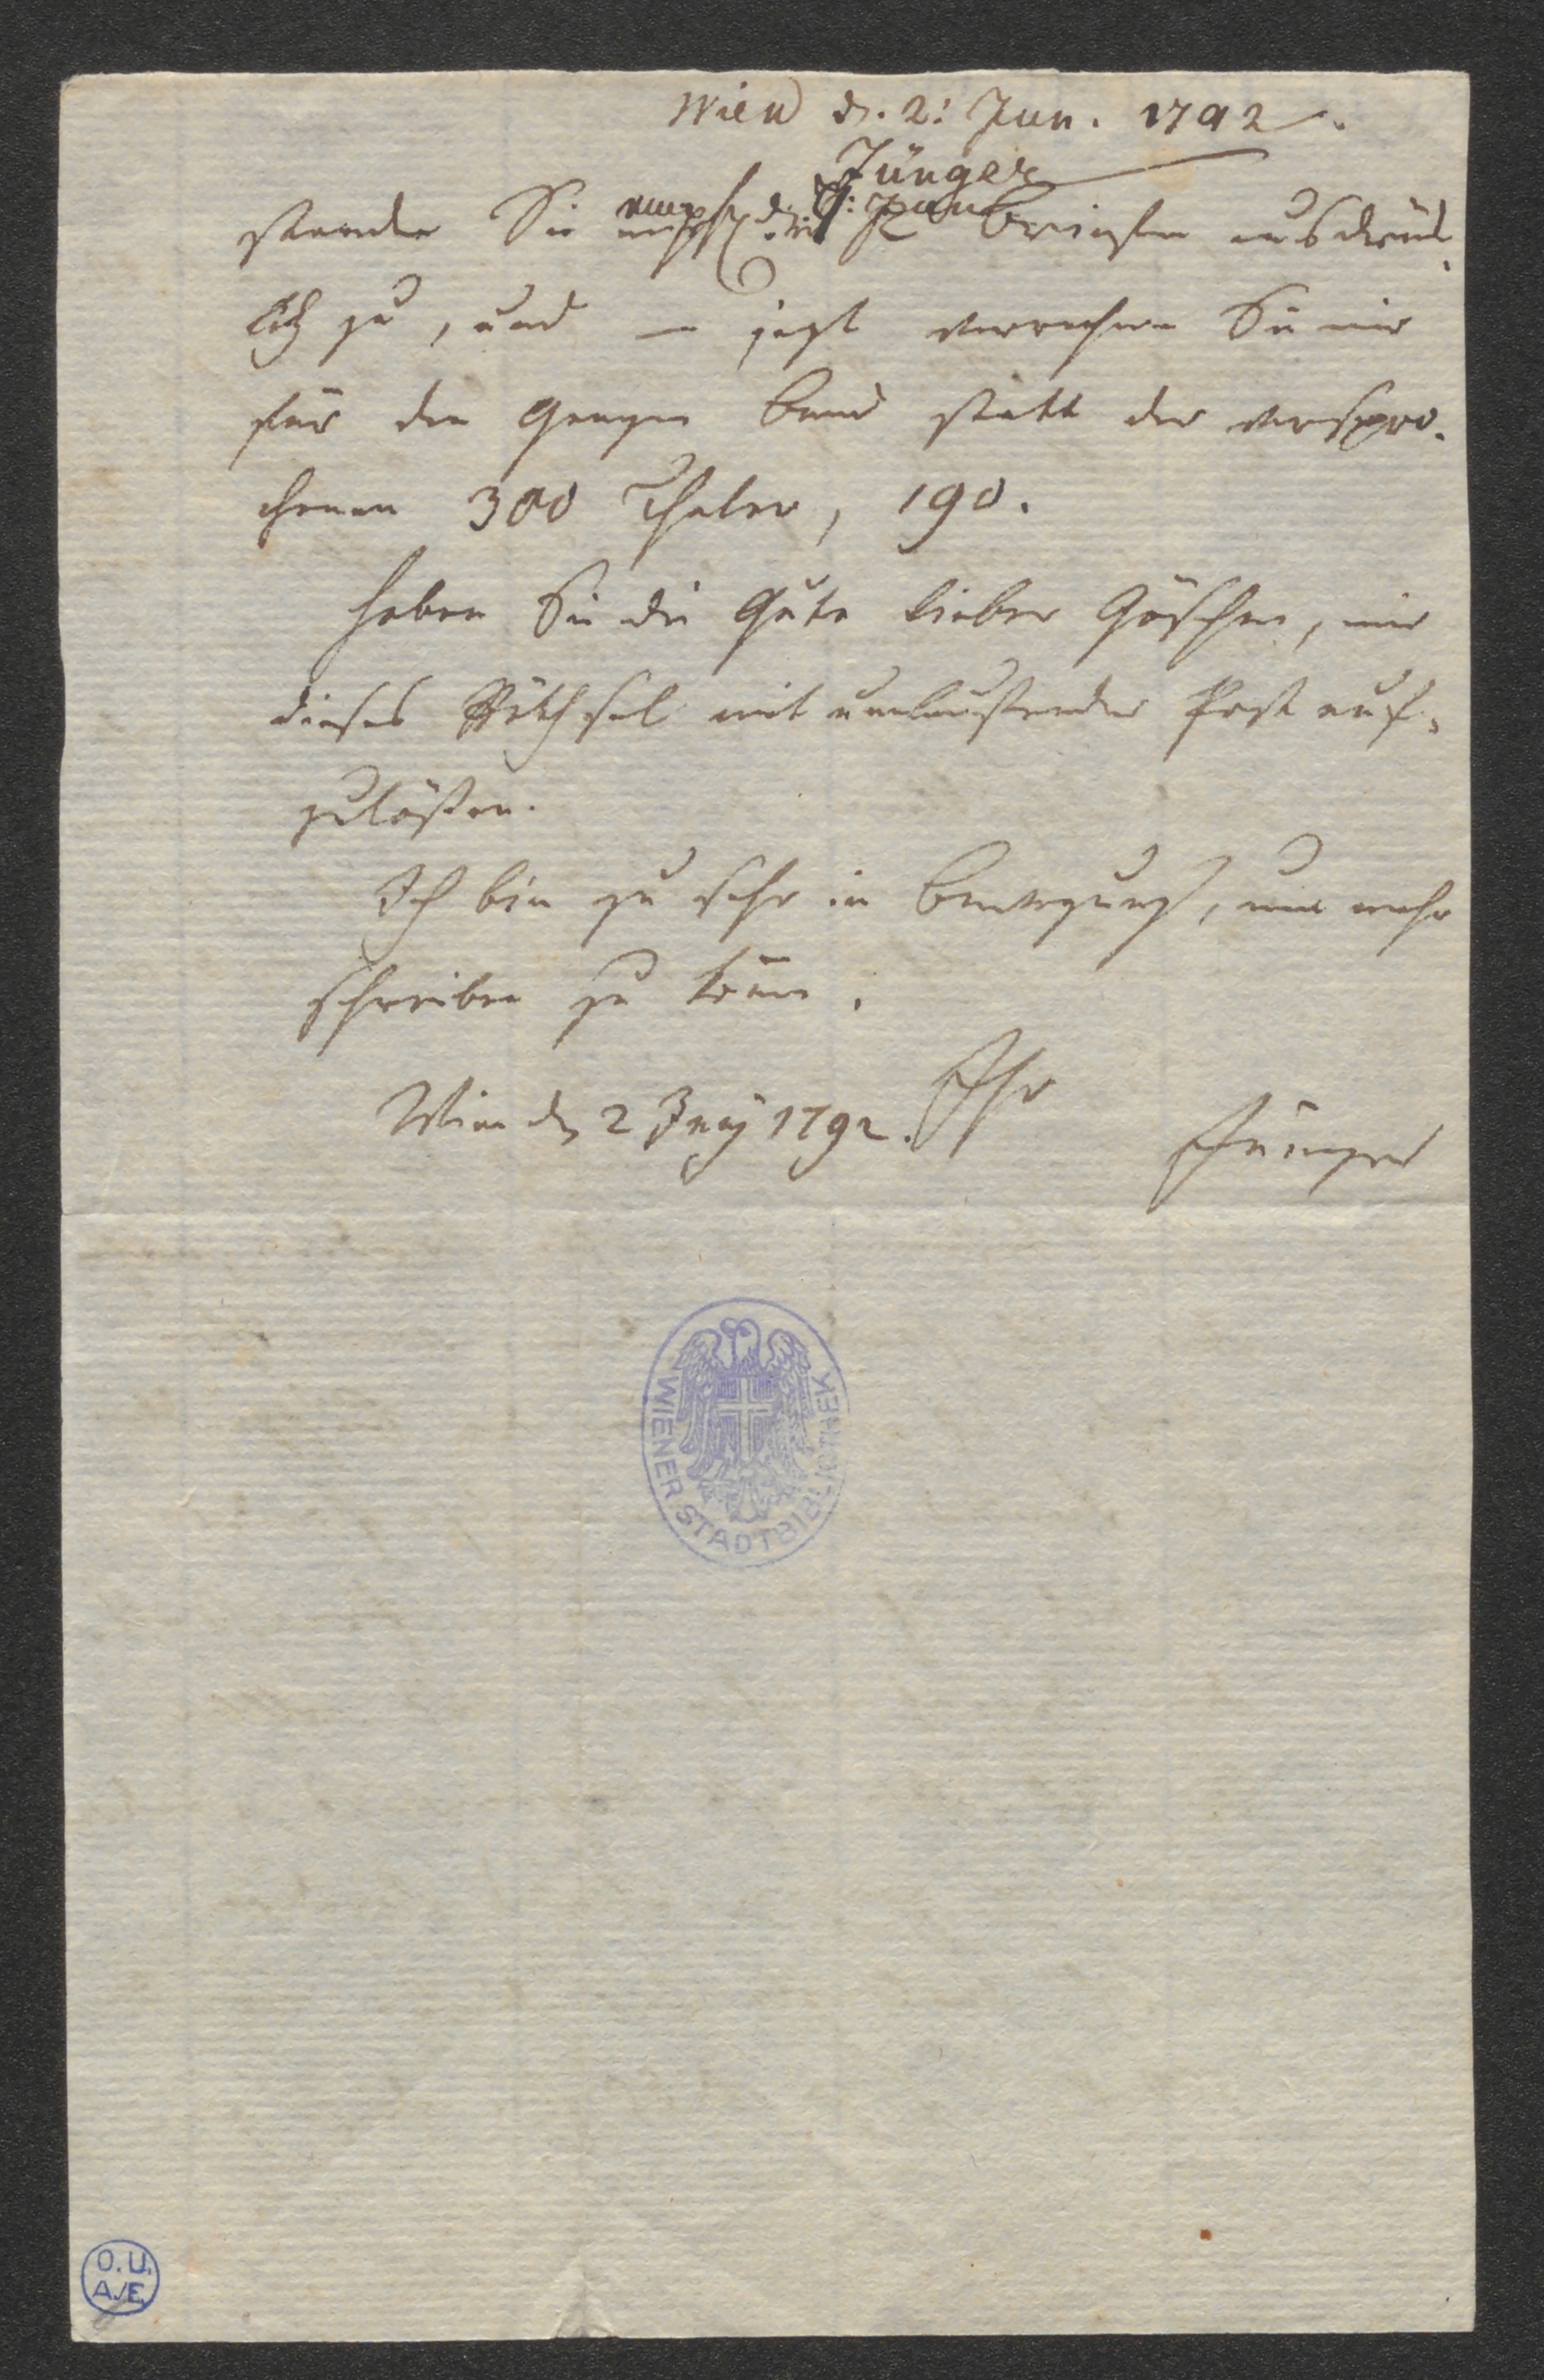 Wien d. 2: Jun. 1792.
Jünger
empf. d. 8: Jun
standen Sie mir in Briefen ausdrük-
lich zu, und — jezt verrechnen Sie mir
für den ganzen Band statt der verspro-
chenen 300 Thaler, 190.
Haben Sie die Güte lieber Göschen, mir
dieses Räthsel mit umlaufender Post auf-
zulößen.
Ich bin zu sehr in Bewegung, um mehr
schreiben zu können.
Wien den 2 Juny 1792. Ihr
Jünger
WIENER STADTBIBLIOTHEK
O.U.
A./E.